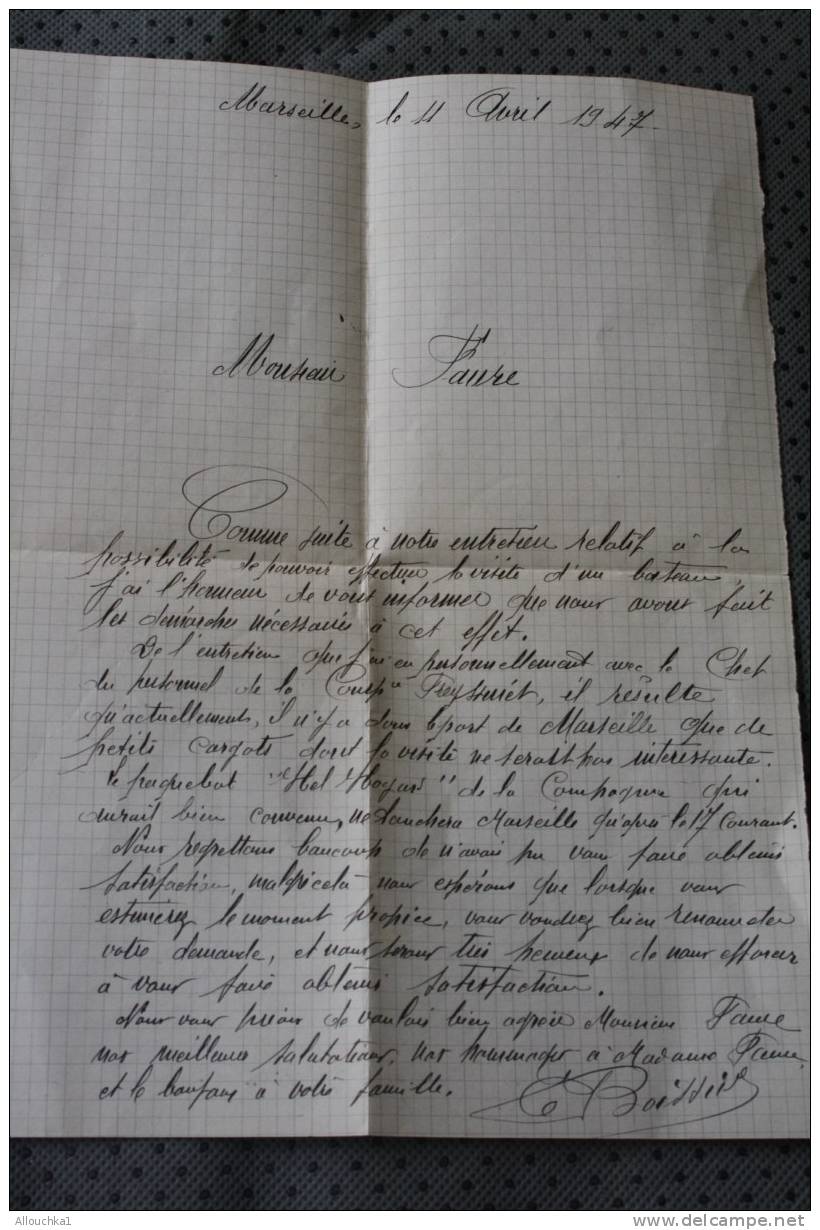 Marseille, le 11 Avril 1947.
Monsieur Faure
Comme suite à notre entretien relatif à la
possibilité de pouvoir effectuer la visite d'un bateau,
j'ai l'honneur de vous informer que nous avons fait
les démarches nécessaires à cet effet.
De l'entretien que j'ai eu personnellement avec le Chef
du personnel de la Comp^ie Freyssinet, il résulte
qu'actuellement, il n'y a dans le port de Marseille que de
petits cargots dont la visite ne serait pas intéressante.
Le paquebot "El Hoggar" de la Compagnie qui
aurait bien convenu, ne touchera Marseille qu'après le 17 Courant.
Nous regrettons beaucoup de n'avoir pu vous faire obtenir
satisfaction, malgré cela nous espérons que lorsque vous
estimerez le moment propice, vous voudrez bien renouveler
votre demande, et nous serons très heureux de nous efforcer
à vous faire obtenir satisfaction.
Nous vous prions de vouloir bien agréer Monsieur Faure
nos meilleures salutations, nos hommages à Madame Faure,
et le bonjour à votre famille.
Boissin
Allouchka1
www.delcampe.net